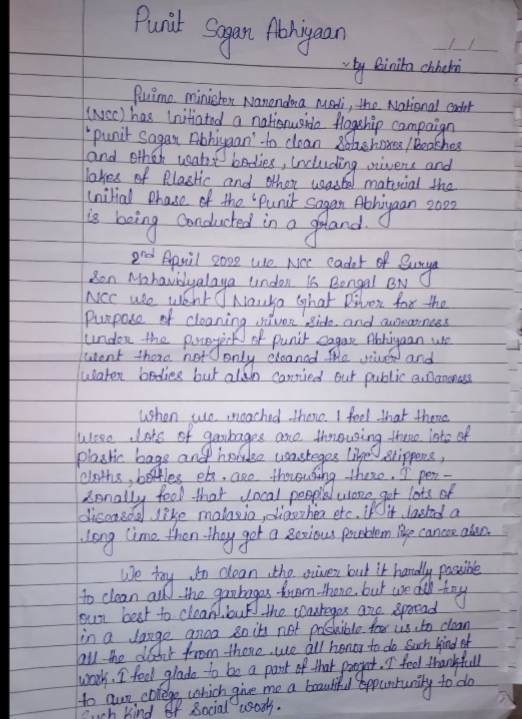 Punit Sagar Abhiyaan
by Binita chhetri
Prime minister Narendra Modi, the National cadet
(NCC) has initiated a nationwide flagship campaign
'Punit Sagar Abhiyaan' to clean Seashores/Beaches
and other water bodies, including rivers and
lakes of Plastic and other waste material the
initial Phase of the 'Punit Sagar Abhiyaan 2022
is being conducted in a grand.
2nd April 2022 we NCC cadet of Surya
Sen Mahavidyalaya under 16 Bengal BN
NCC we went Nauka Ghat River for the
Purpose of cleaning river side and awearness
under the project of Punit Sagar Abhiyaan we
went there not only cleaned the river and
water bodies but also carried out public awareness
When we reached there I feel that there
were lots of garbages are throwing there lots of
plastic bags and house wasteges like slippers,
cloths, bottles etc. are throwing there. I per-
sonally feel that local people were get lots of
diseases like malaria, diarrhea etc. if it lasted a
long time then they get a serious problem like cancer also.
We try to clean the river but it hardly possible
to clean all the garbages from there. but we all try
our best to clean. but the wasteges are spread
in a large area so its not possible for us to clean
all the dirt from there. we all honor to do such kind of
work. I feel glade to be a part of that project. I feel thankfull
to our college which give me a beautiful oppurtunity to do
such kind of social work.